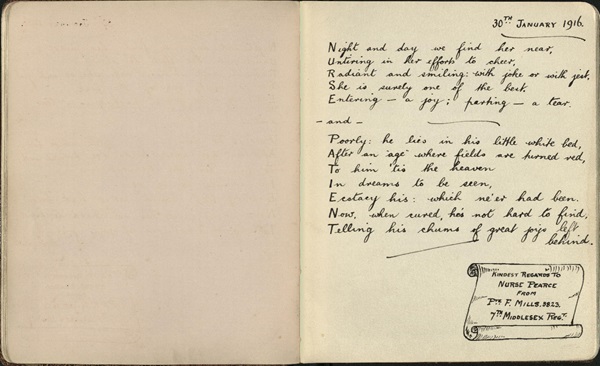 30TH JANUARY 1916.
Night and day we find her near,
Untiring in her efforts to cheer,
Radiant and smiling: with joke or with jest,
She is surely one of the best.
Entering — a joy; parting — a tear.
– and –
Poorly: he lies in his little white bed,
After an "age" where fields are turned red,
To him 'tis the heaven
In dreams to be seen,
Ecstacy his: which ne'er had been.
Now, when cured, hes not hard to find,
Telling his chums of great joys left
behind.
KINDEST REGARDS TO
NURSE PEARCE
FROM
PTE F. MILLS. 3823.
7TH MIDDLESEX REGT.